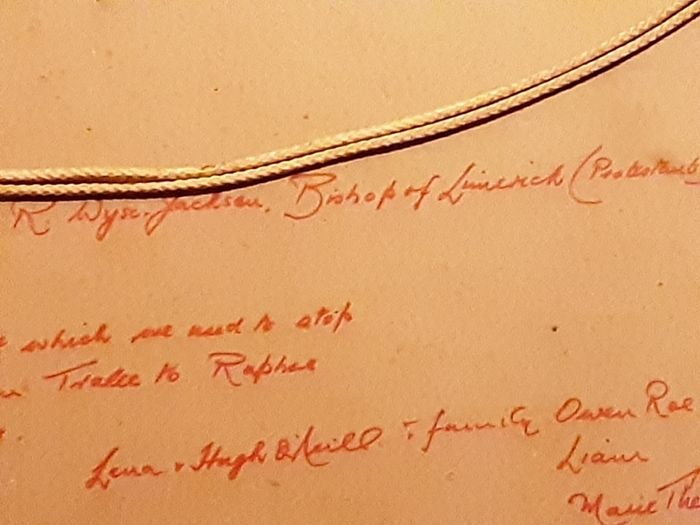 R Wyse-Jackson, Bishop of Limerick (Protestant
which we used to stop
Tralee to Raphoe
Lena & Hugh O'Neill & family Owen Roe
Liam
Marie The